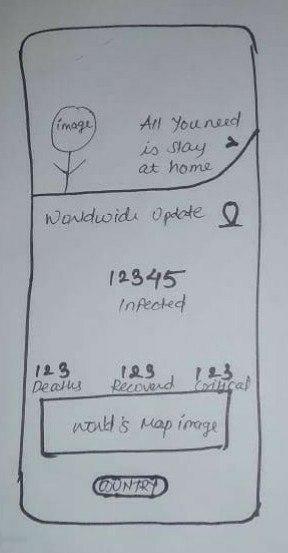 image
All You need
is stay
at home
Worldwide Update
12345
Infected
123 123 123
Deaths Recoverd Critical
World's Map image
COUNTRY